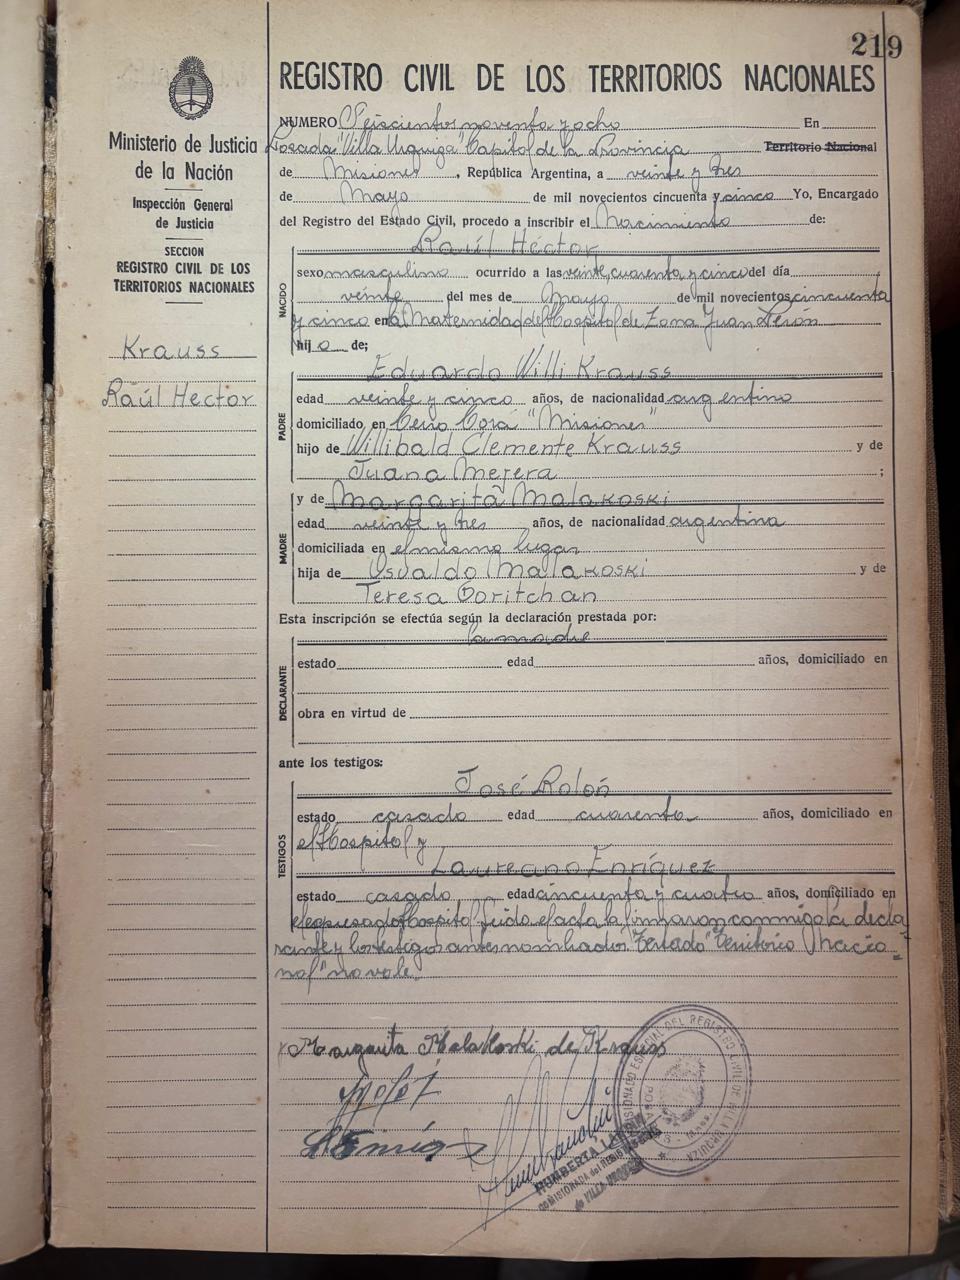 219
Ministerio de Justicia
de la Nación
Inspección General
de Justicia
SECCION
REGISTRO CIVIL DE LOS
TERRITORIOS NACIONALES
Krauss
Raúl Hector
REGISTRO CIVIL DE LOS TERRITORIOS NACIONALES
NUMERO Seiscientos noventa y ocho En
Posadas "Villa Urquiza" Capital de la Provincia Territorio Nacional
de Misiones, República Argentina, a veinte y tres
de Mayo de mil novecientos cincuenta y cinco Yo, Encargado
del Registro del Estado Civil, procedo a inscribir el Nacimiento de:
NACIDO
Raúl Héctor
sexo masculino ocurrido a las veinte, cuarenta y cinco del día
veinte del mes de Mayo de mil novecientos cincuenta
y cinco en la Maternidad del Hospital de Zona Juan Perón
hijo de;
PADRE
Eduardo Willi Krauss
edad veinte y cinco años, de nacionalidad argentino
domiciliado en Cerro Corá "Misiones"
hijo de Willibald Clemente Krauss y de
Juana Merera ;
MADRE
y de Margarita Malakoski
edad veinte y tres años, de nacionalidad argentina
domiciliada en el mismo lugar
hija de Osvaldo Malakoski y de
Teresa Goritchan
Esta inscripción se efectúa según la declaración prestada por:
DECLARANTE
la madre
estado edad años, domiciliado en
obra en virtud de
ante los testigos:
TESTIGOS
José Rolón
estado casado edad cuarenta años, domiciliado en
el Hospital y
Laureano Enríquez
estado casado edad cincuenta y cuatro años, domiciliado en
el expresado Hospital. Leída el acta, la firmaron conmigo la decla
rante y los testigos antes nombrados. Testado "Territorio Nacio=
nal" no vale.
Margarita Malakoski de Krauss
HUMBERTA
COMISIONADA del REGISTRO
de VILLA URQUIZA
COMISIONADO ESPECIAL DEL REGISTRO CIVIL DE VILLA URQUIZA